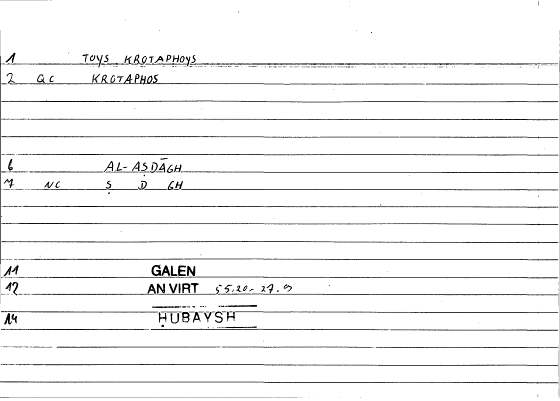 1 TOYS KROTAPHOYS
2 GC KROTAPHOS
6 AL-AṢDĀGH
7 NC Ṣ D GH
11 GALEN
12 AN VIRT 55.20-27.9
14 ḤUBAYSH